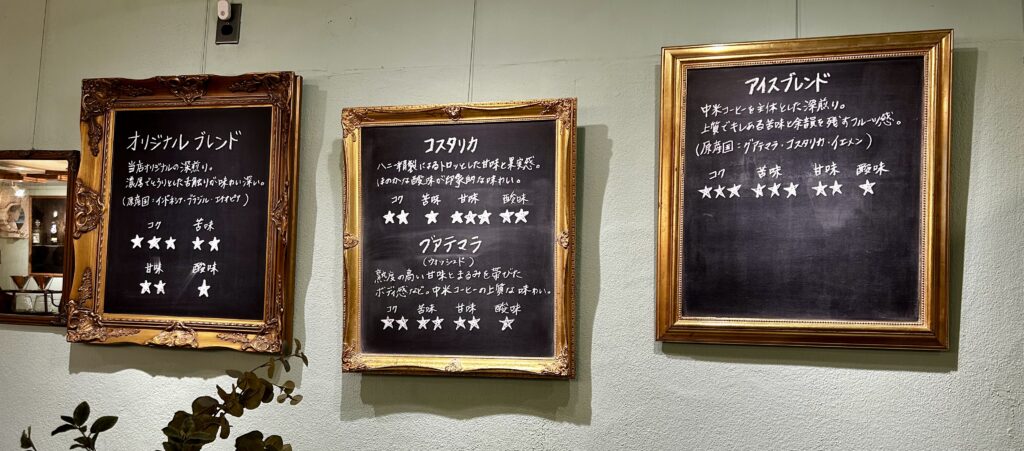 オリジナル ブレンド
当店オリジナルの深煎り。
濃厚でとろりとした舌触りが味わい深い。
(原産国：インドネシア・ブラジル・エチオピア)
コク 苦味
★★★ ★★
甘味 酸味
★★ ★
コスタリカ
ハニー精製によるトロッとした甘味と果実感。
ほのかな酸味が印象的な味わい。
コク 苦味 甘味 酸味
★★ ★ ★★★ ★★
グアテマラ
(ウォッシュド)
熟度の高い甘味とまるみを帯びた
ボディ感など。中米コーヒーの上質な味わい。
コク 苦味 甘味 酸味
★★ ★★ ★★ ★
アイスブレンド
中米コーヒーを主体とした深煎り。
上質でキレある苦味と余韻を残すフルーツ感。
(原産国：グアテマラ・コスタリカ・イエメン)
コク 苦味 甘味 酸味
★★★ ★★★ ★★ ★